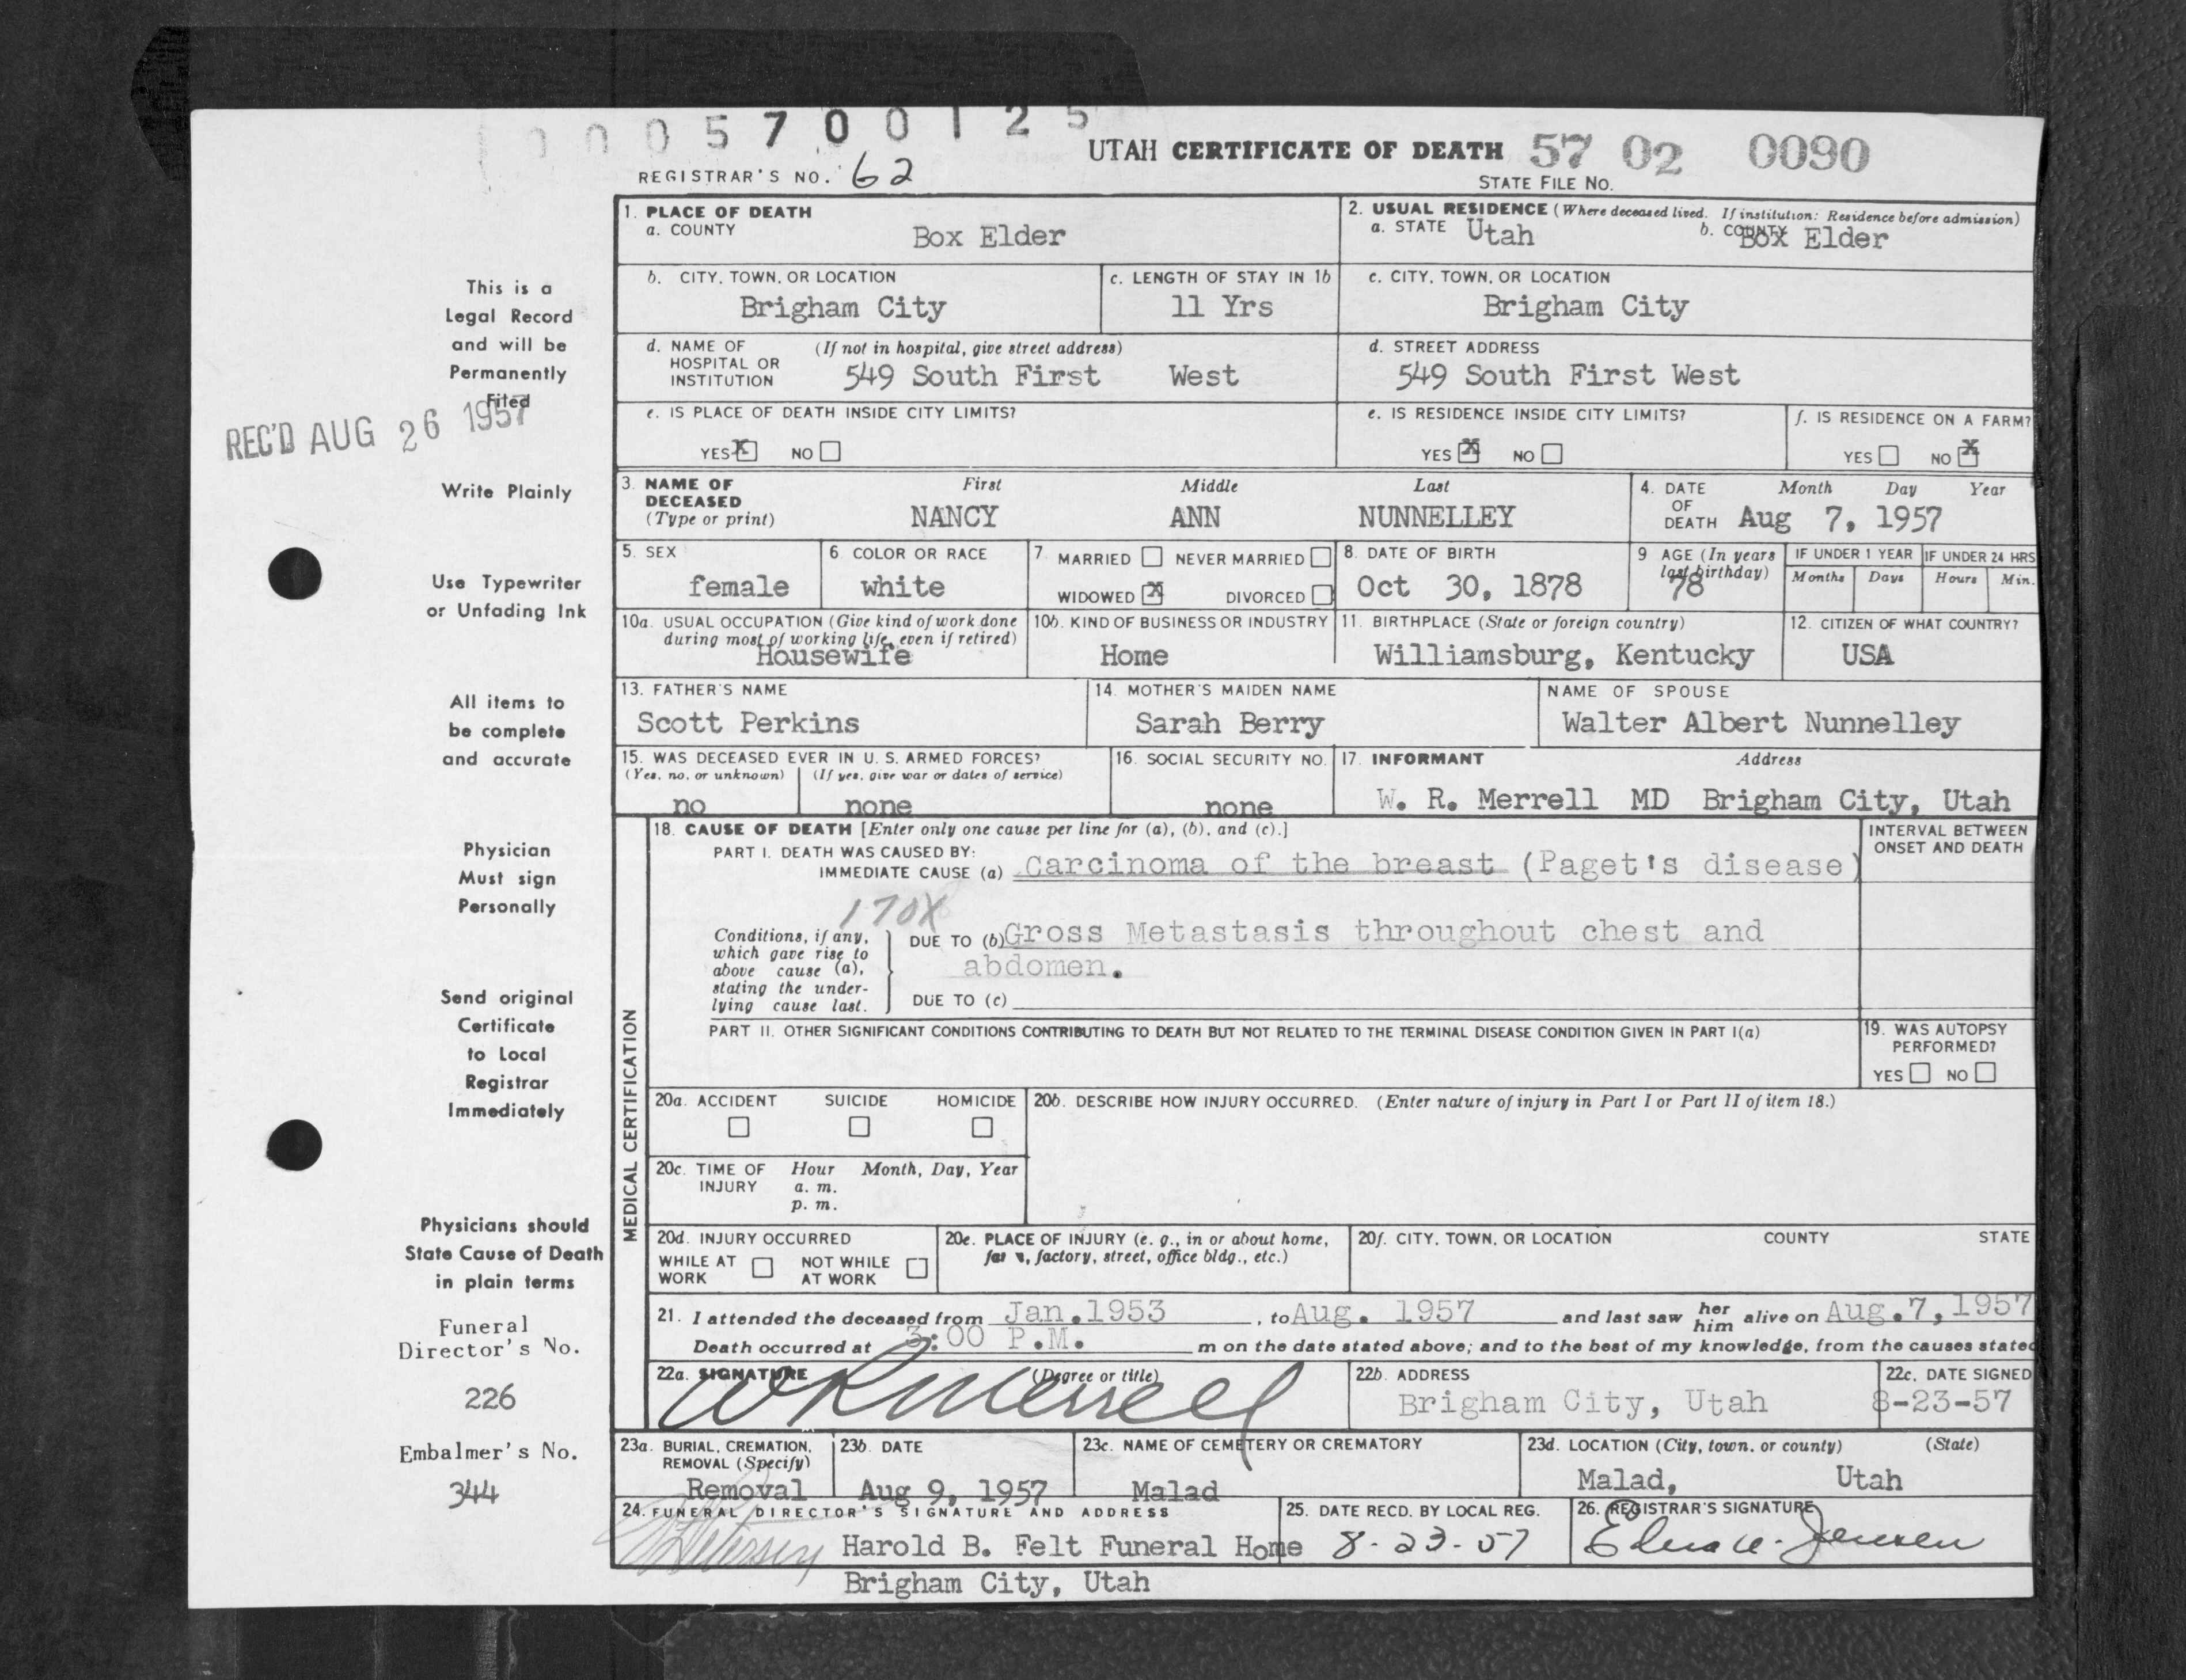 0005700125
UTAH CERTIFICATE OF DEATH 57 02 0090
REGISTRAR'S NO. 62
STATE FILE NO.
This is a
Legal Record
and will be
Permanently
Filed
REC'D AUG 26 1957
Write Plainly
Use Typewriter
or Unfading Ink
All items to
be complete
and accurate
Physician
Must sign
Personally
Send original
Certificate
to Local
Registrar
Immediately
Physicians should
State Cause of Death
in plain terms
Funeral
Director's No.
226
Embalmer's No.
344
1. PLACE OF DEATH
a. COUNTY Box Elder
2. USUAL RESIDENCE (Where deceased lived. If institution: Residence before admission)
a. STATE Utah b. COUNTY Box Elder
b. CITY, TOWN, OR LOCATION
Brigham City
c. LENGTH OF STAY IN 1b
11 Yrs
c. CITY, TOWN, OR LOCATION
Brigham City
d. NAME OF HOSPITAL OR INSTITUTION (If not in hospital, give street address)
549 South First West
d. STREET ADDRESS
549 South First West
e. IS PLACE OF DEATH INSIDE CITY LIMITS?
YES X NO
e. IS RESIDENCE INSIDE CITY LIMITS?
YES X NO
f. IS RESIDENCE ON A FARM?
YES NO X
3. NAME OF DECEASED (Type or print)
First Middle Last
NANCY ANN NUNNELLEY
4. DATE OF DEATH Month Day Year
Aug 7, 1957
5. SEX
female
6. COLOR OR RACE
white
7. MARRIED NEVER MARRIED
WIDOWED X DIVORCED
8. DATE OF BIRTH
Oct 30, 1878
9 AGE (In years last birthday)
78
IF UNDER 1 YEAR
Months Days
IF UNDER 24 HRS
Hours Min.
10a. USUAL OCCUPATION (Give kind of work done during most of working life, even if retired)
Housewife
10b. KIND OF BUSINESS OR INDUSTRY
Home
11. BIRTHPLACE (State or foreign country)
Williamsburg, Kentucky
12. CITIZEN OF WHAT COUNTRY?
USA
13. FATHER'S NAME
Scott Perkins
14. MOTHER'S MAIDEN NAME
Sarah Berry
NAME OF SPOUSE
Walter Albert Nunnelley
15. WAS DECEASED EVER IN U. S. ARMED FORCES?
(Yes, no, or unknown) (If yes, give war or dates of service)
no none
16. SOCIAL SECURITY NO.
none
17. INFORMANT Address
W. R. Merrell MD Brigham City, Utah
MEDICAL CERTIFICATION
18. CAUSE OF DEATH [Enter only one cause per line for (a), (b), and (c).]
INTERVAL BETWEEN ONSET AND DEATH
PART I. DEATH WAS CAUSED BY:
IMMEDIATE CAUSE (a) Carcinoma of the breast (Paget's disease)
170X
Conditions, if any, which gave rise to above cause (a), stating the underlying cause last.
DUE TO (b) Gross Metastasis throughout chest and
abdomen.
DUE TO (c)
PART II. OTHER SIGNIFICANT CONDITIONS CONTRIBUTING TO DEATH BUT NOT RELATED TO THE TERMINAL DISEASE CONDITION GIVEN IN PART I(a)
19. WAS AUTOPSY PERFORMED?
YES NO
20a. ACCIDENT SUICIDE HOMICIDE
20b. DESCRIBE HOW INJURY OCCURRED. (Enter nature of injury in Part I or Part II of item 18.)
20c. TIME OF INJURY Hour Month, Day, Year
a. m.
p. m.
20d. INJURY OCCURRED
WHILE AT WORK NOT WHILE AT WORK
20e. PLACE OF INJURY (e. g., in or about home, farm, factory, street, office bldg., etc.)
20f. CITY, TOWN, OR LOCATION COUNTY STATE
21. I attended the deceased from Jan.1953, to Aug. 1957 and last saw her him alive on Aug.7,1957
Death occurred at 3:00 P.M. m on the date stated above; and to the best of my knowledge, from the causes stated
22a. SIGNATURE (Degree or title)
WR Merrell
22b. ADDRESS
Brigham City, Utah
22c. DATE SIGNED
8-23-57
23a. BURIAL, CREMATION, REMOVAL (Specify)
Removal
23b. DATE
Aug 9, 1957
23c. NAME OF CEMETERY OR CREMATORY
Malad
23d. LOCATION (City, town, or county) (State)
Malad, Utah
24. FUNERAL DIRECTOR'S SIGNATURE AND ADDRESS
Harold B. Felt Funeral Home
Brigham City, Utah
25. DATE RECD. BY LOCAL REG.
8-23-57
26. REGISTRAR'S SIGNATURE
Jensen